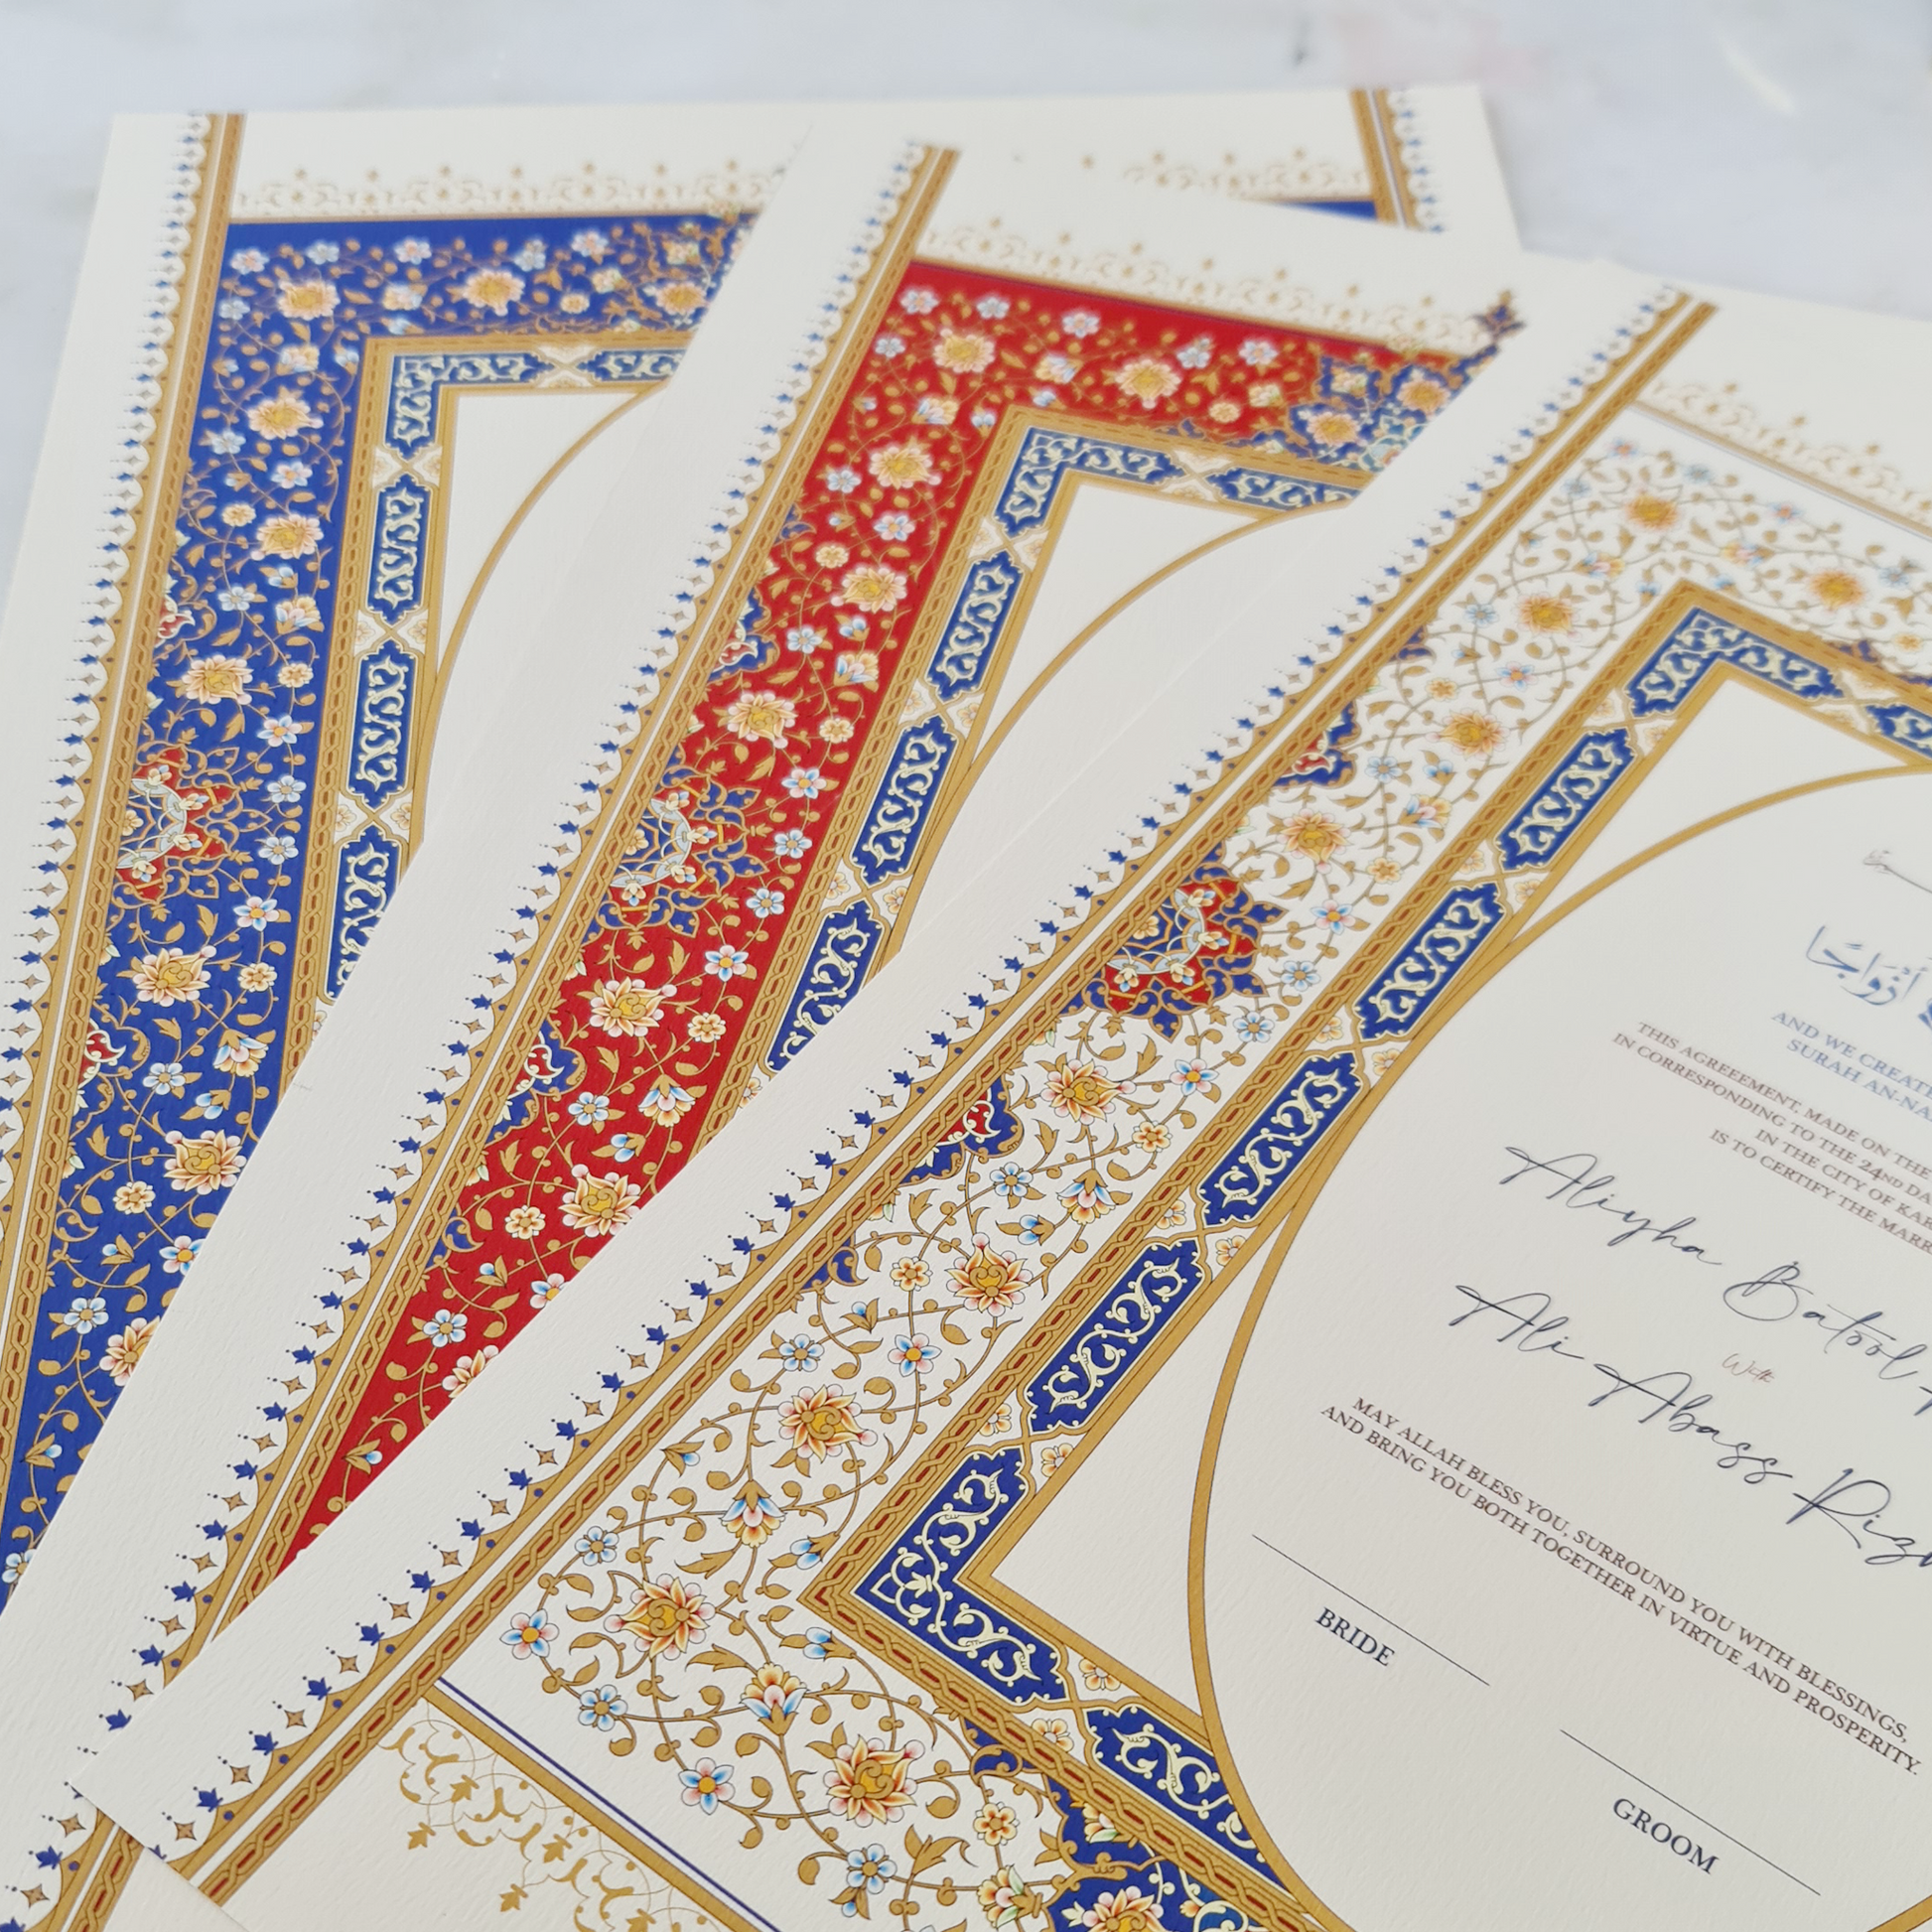 أَزْوَاجًا
AND WE CREATE
SURAH AN-NA
THIS AGREEEMENT, MADE ON THE
IN CORRESPONDING TO THE 24ND DA
IN THE CITY OF KAR
IS TO CERTIFY THE MARR
Aliyha Batool
With
Ali Abass Rizv
MAY ALLAH BLESS YOU, SURROUND YOU WITH BLESSINGS,
AND BRING YOU BOTH TOGETHER IN VIRTUE AND PROSPERITY.
BRIDE
GROOM